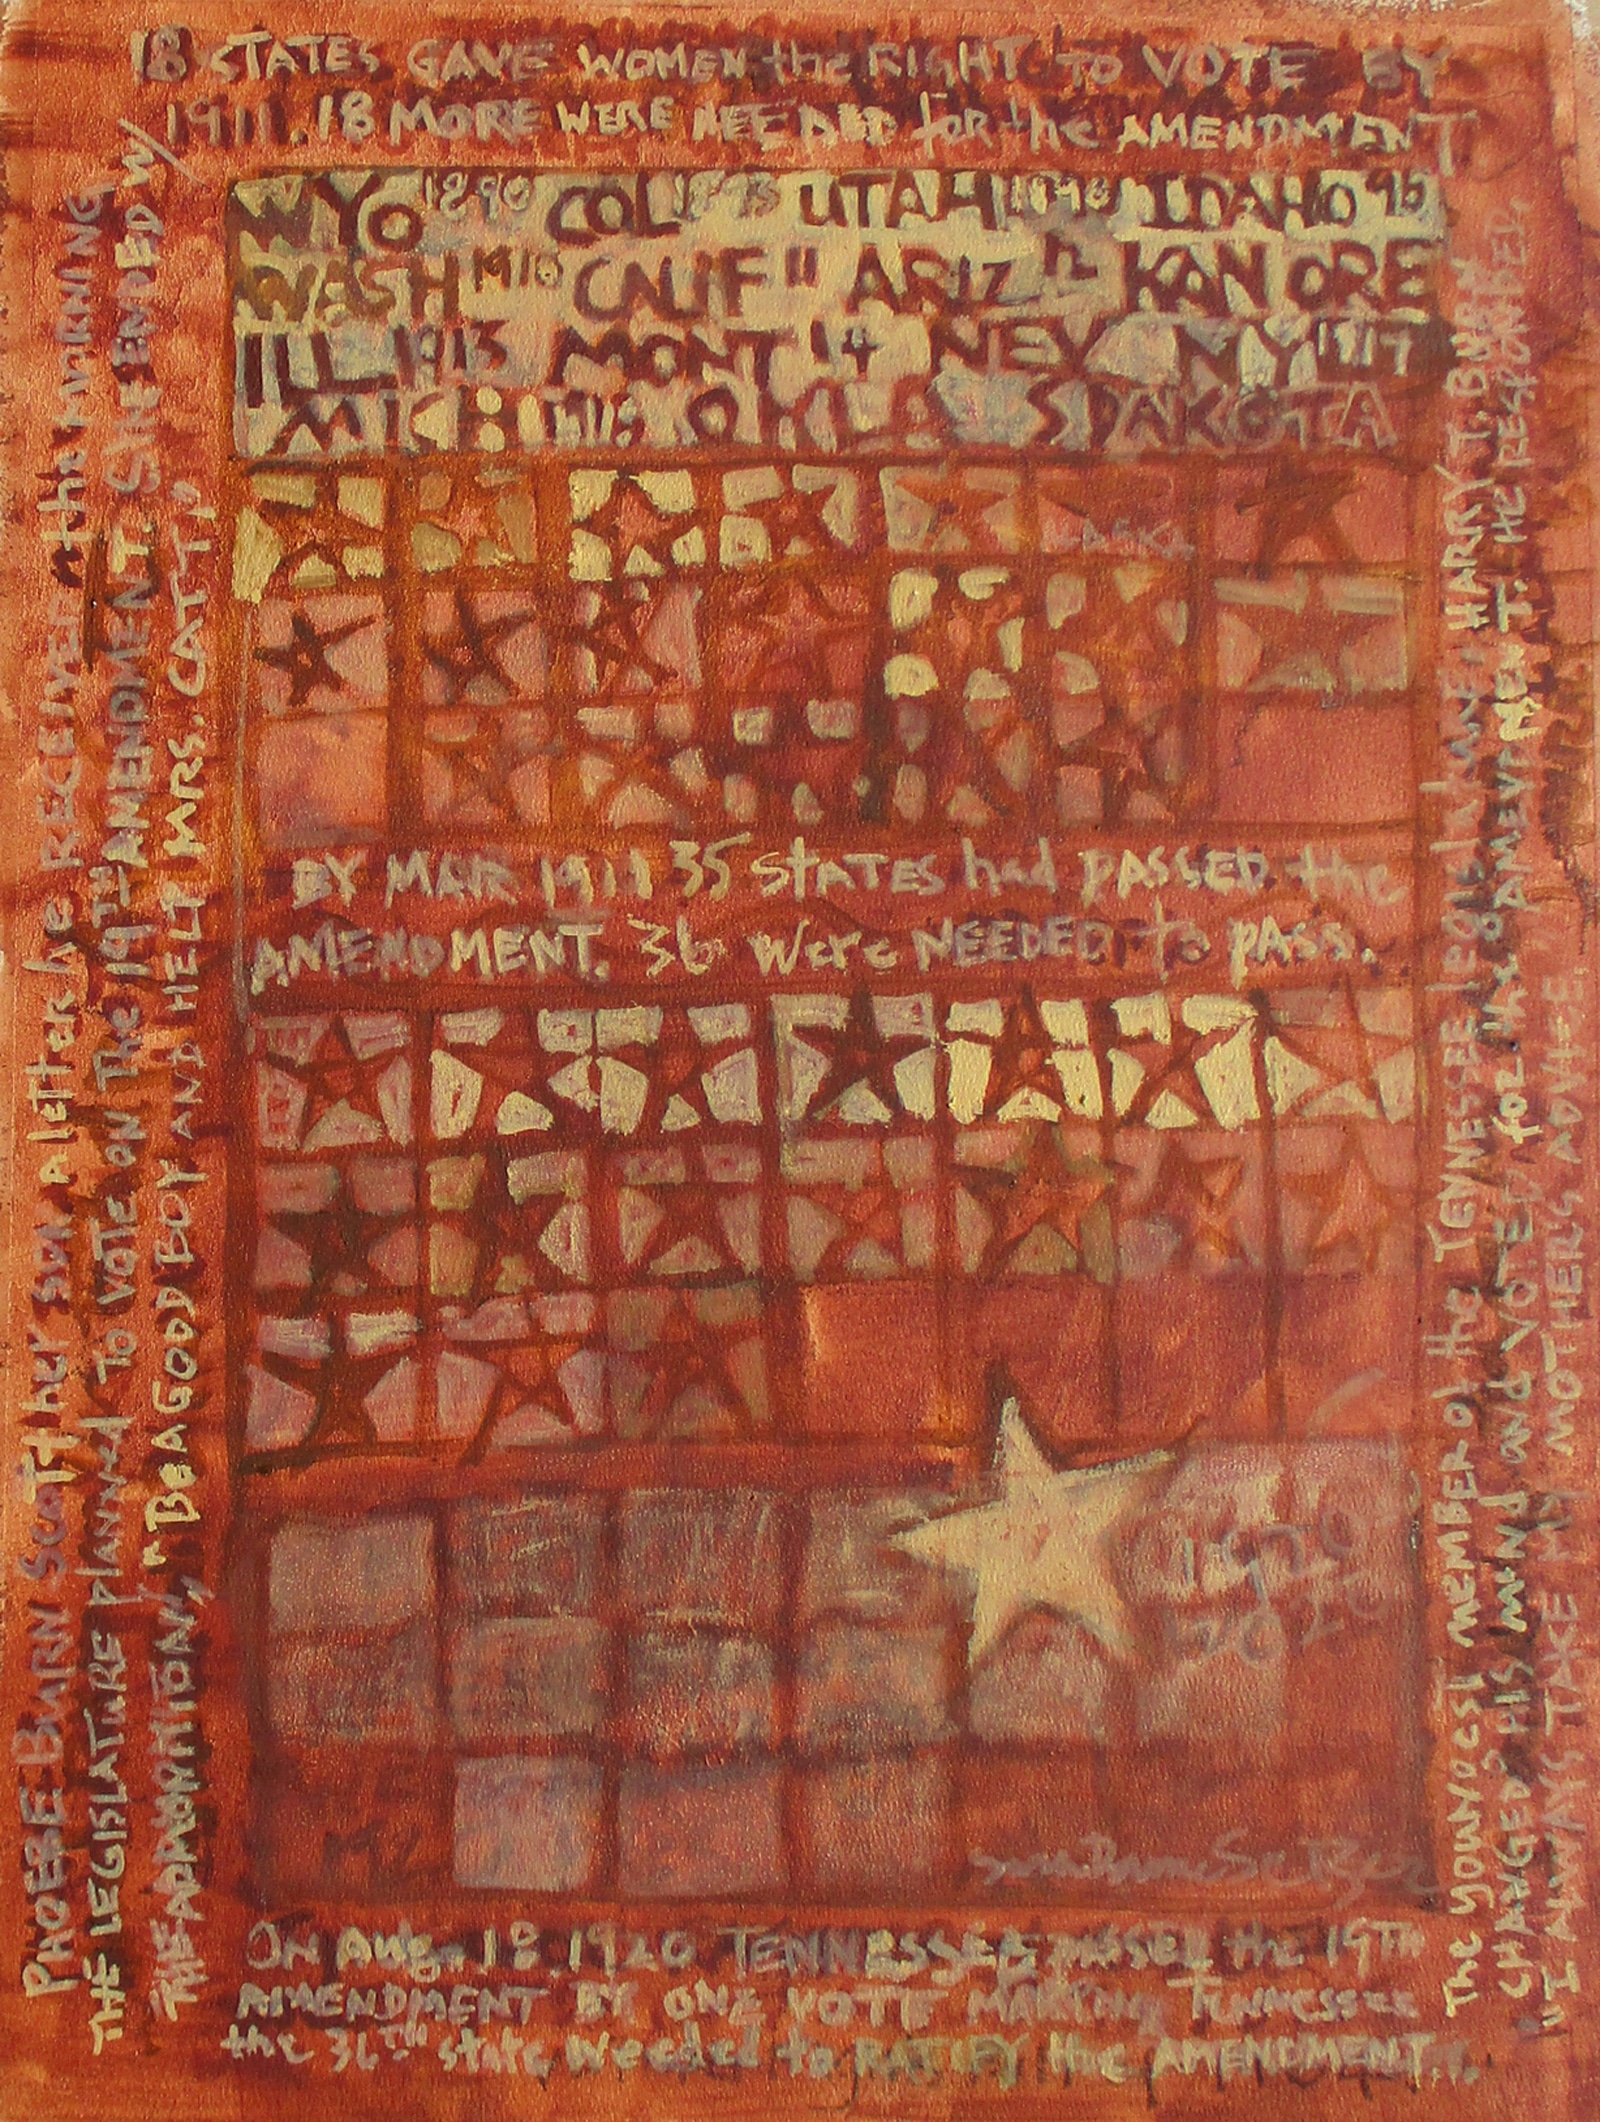 18 STATES GAVE WOMEN the RIGHT TO VOTE BY
1911. 18 MORE WERE NEEDED for the AMENDMENT
WYO 1890 COL 1893 UTAH 1896 IDAHO 96
WASH 1910 CALIF 11 ARIZ 12 KAN ORE
ILL 1913 MONT 14 NEV NY 1917
MICH 1918 OKL S DAKOTA
BY MAR 1911 35 STATES had PASSED the
AMENDMENT. 36 were NEEDED to pass.
1920
2020
ON Aug. 18 1920 TENNESSEE PASSED the 19TH
AMENDMENT BY ONE VOTE MAKING TENNESSEE
the 36TH state needed to RATIFY the AMENDMENT.
PHOEBE BURN SENT her son a letter he RECEIVED the MORNING
THE LEGISLATURE planned TO VOTE ON The 19TH AMENDMENT. SHE ENDED W/
THE ADMONITION, "BE A GOOD BOY AND HELP MRS. CATT."
The YOUNGEST MEMBER of the TENNESSEE legislature, HARRY T. BURN
CHANGED HIS MIND and VOTED for the AMENDMENT. HE RESPONDED,
"I ALWAYS TAKE MY MOTHERS ADVICE."